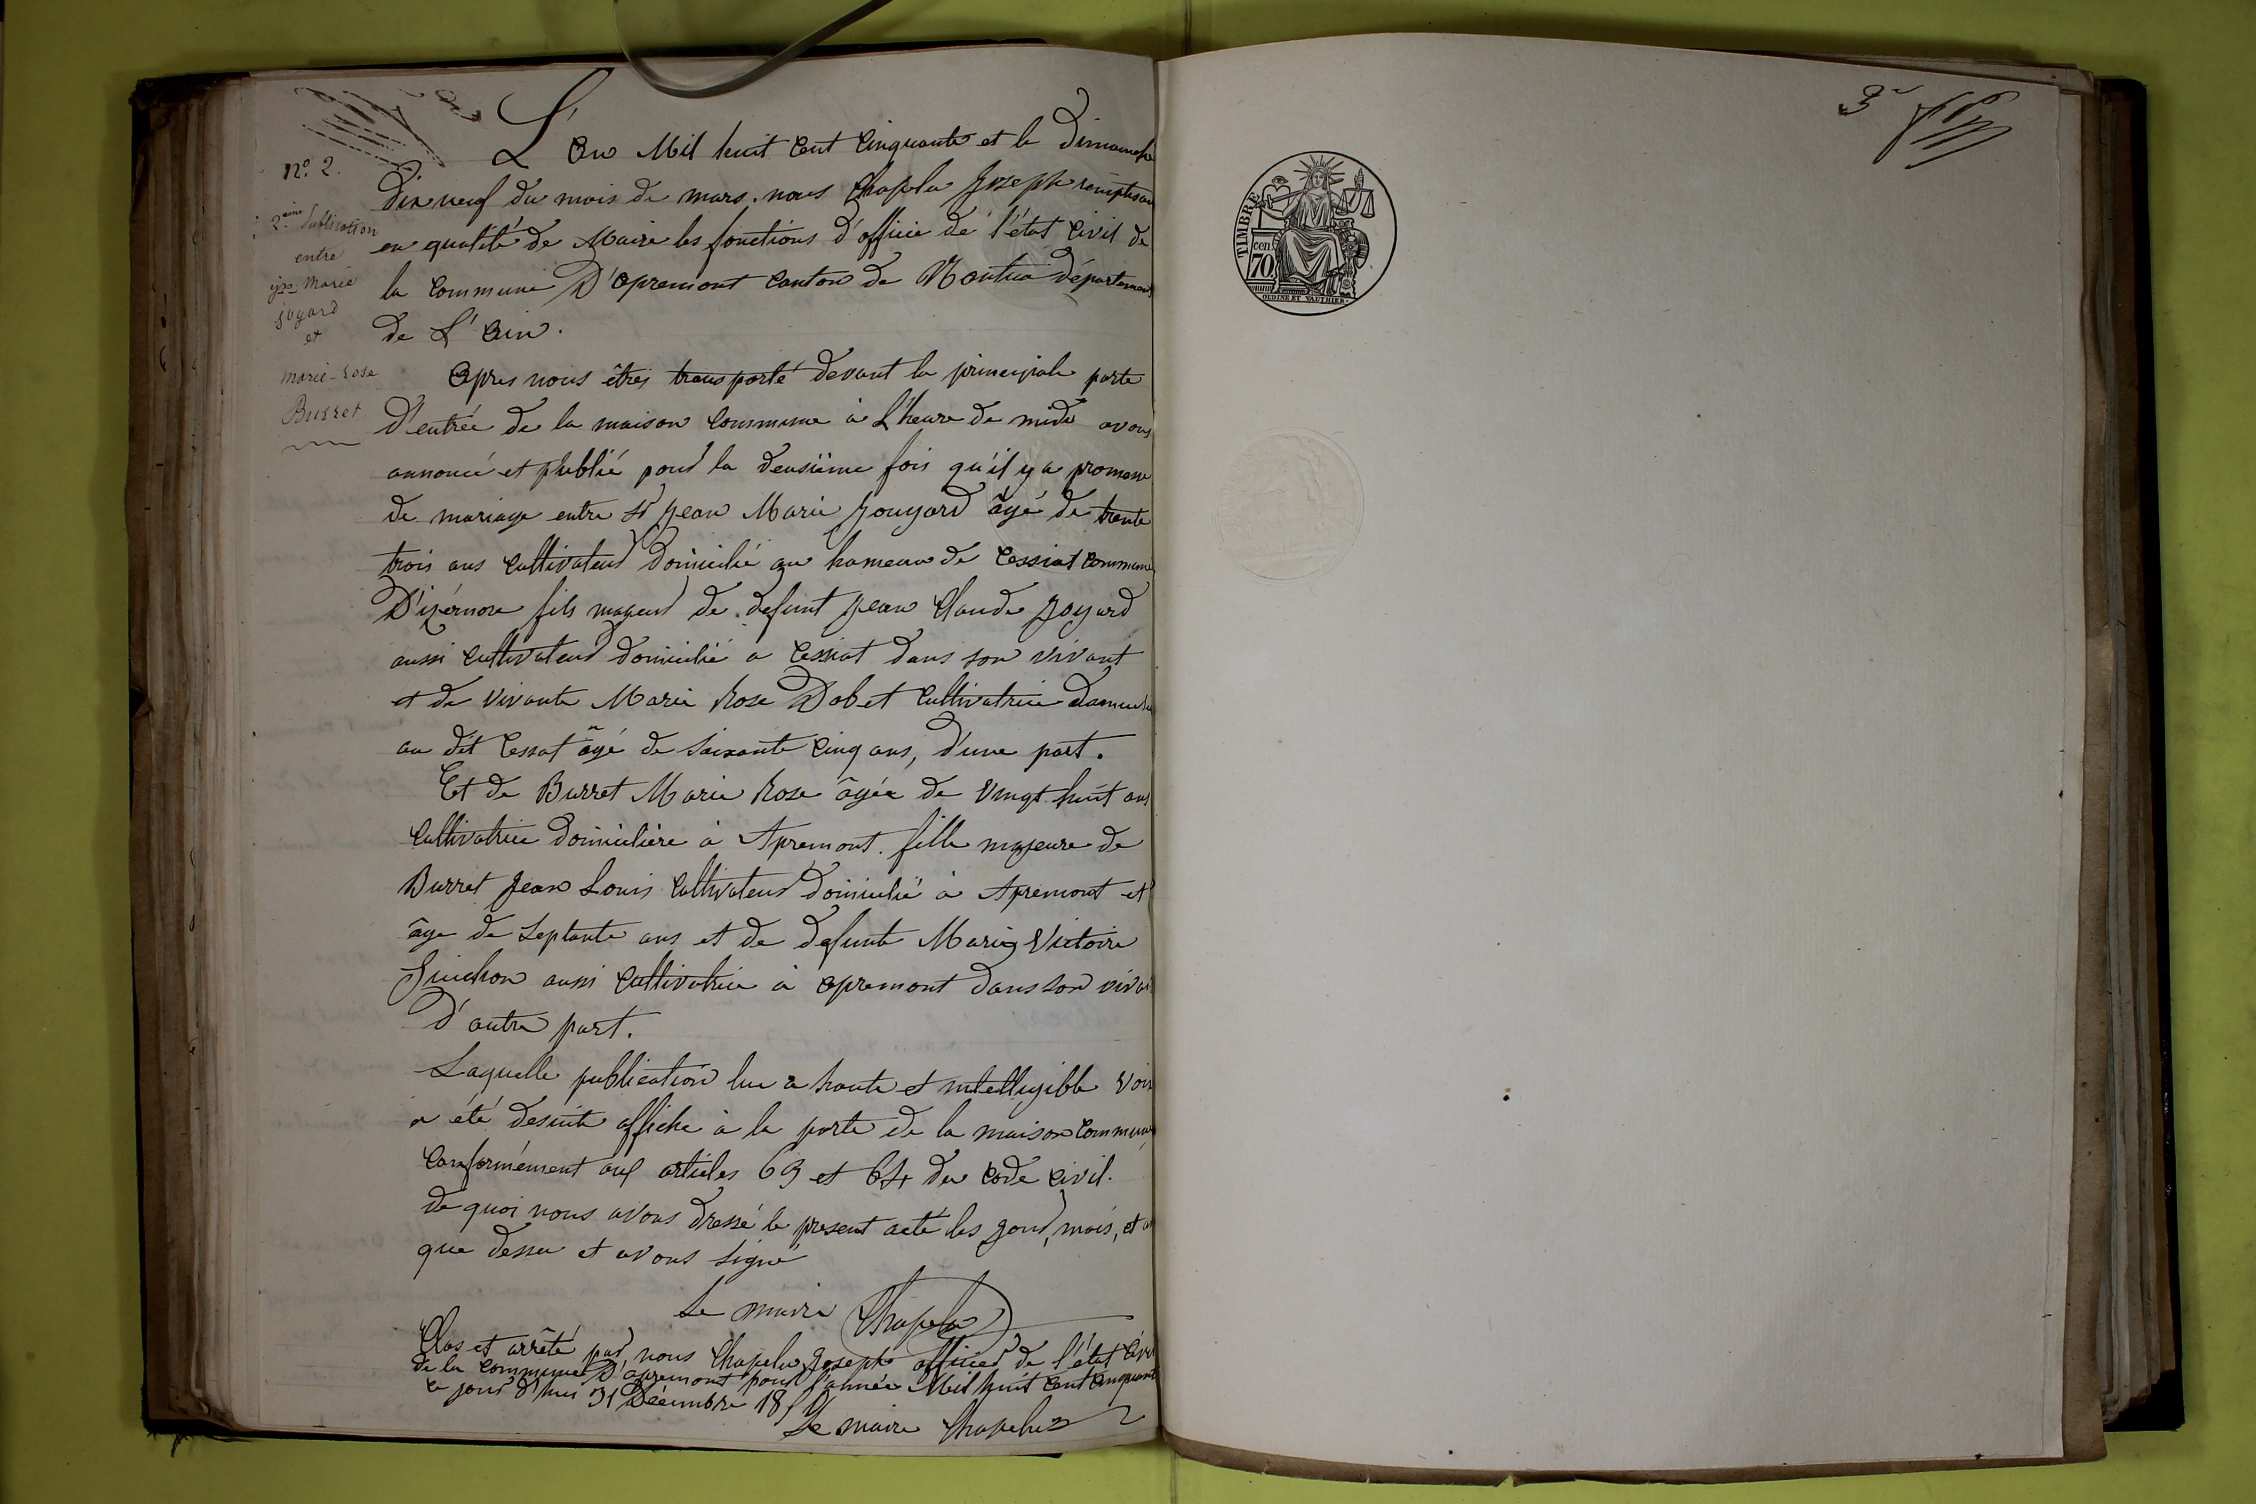 n°. 2.
2ème Publication
entre
jn Marie
joyard
et
marie-rose
Burret
L'an Mil huit cent cinquante et le dimanche
dix neuf du mois de mars. nous Chapelu Joseph remplissan
en qualité de Maire les fonctions d'officie de l'état civil de
la commune D'apremont canton de Nantua département
de L'ain.
Apres nous êtres transporté devant la principale porte
D'entrée de la maison commune à L'heure de midi avons
annoncé et publié pour la deusiième fois qu'il y a promesse
de mariage entre Sr Jean Marie Jouyard âgé de trente
trois ans cultivateur domicilié au hameau de Cessiat commune
D'izérnore fils mageur de defunt Jean Claude Joyard
aussi cultivateur domicilié a Cessiat dans son vivant
et de vivante Marie Rose Dobet cultivatrice
au dit Cessat âgé de soixante cinq ans, d'une part.
Et de Burret Marie Rose âgée de vingt huit ans
cultivatrice domicilière à Apremont. fille majeure de
Burret Jean Louis cultivateur domicilié à Apremont et
âge de septante ans et de defunte Marie Victoire
Guichon aussi cultivatrice à apremont dans son vivan
D'autre part.
Laquelle publication lue a haute et intelligible voix
a été desuite affiche à la porte de la maison commune
conformément aux articles 63 et 64 du code civil.
de quoi nous avons dressé le present acte les jour, mois, et an
que dessu et avons signé
Le maire Chapelu
Clos et arrêté par nous Chapelu Joseph officier de l'état civil
de la commune D'apremont pour l'année Mil huit cent cinquante
ce jour d'hui 31 Décembre 18
Le maire Chapelu
3e
TIMBRE
cen.
70